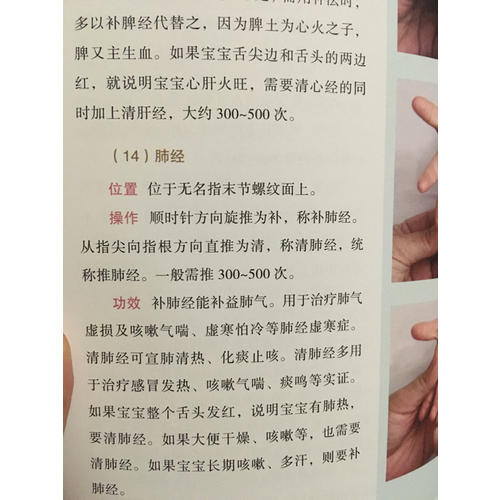 多以补脾经代替之，因为脾土为心火之子，
脾又主生血。如果宝宝舌尖边和舌头的两边
红，就说明宝宝心肝火旺，需要清心经的同
时加上清肝经，大约300~500次。
（14）肺经
位置 位于无名指末节螺纹面上。
操作 顺时针方向旋推为补，称补肺经。
从指尖向指根方向直推为清，称清肺经，统
称推肺经。一般需推300~500次。
功效 补肺经能补益肺气。用于治疗肺气
虚损及咳嗽气喘、虚寒怕冷等肺经虚寒症。
清肺经可宣肺清热、化痰止咳。清肺经多用
于治疗感冒发热、咳嗽气喘、痰鸣等实证。
如果宝宝整个舌头发红，说明宝宝有肺热，
要清肺经。如果大便干燥、咳嗽等，也需要
清肺经。如果宝宝长期咳嗽、多汗，则要补
肺经。